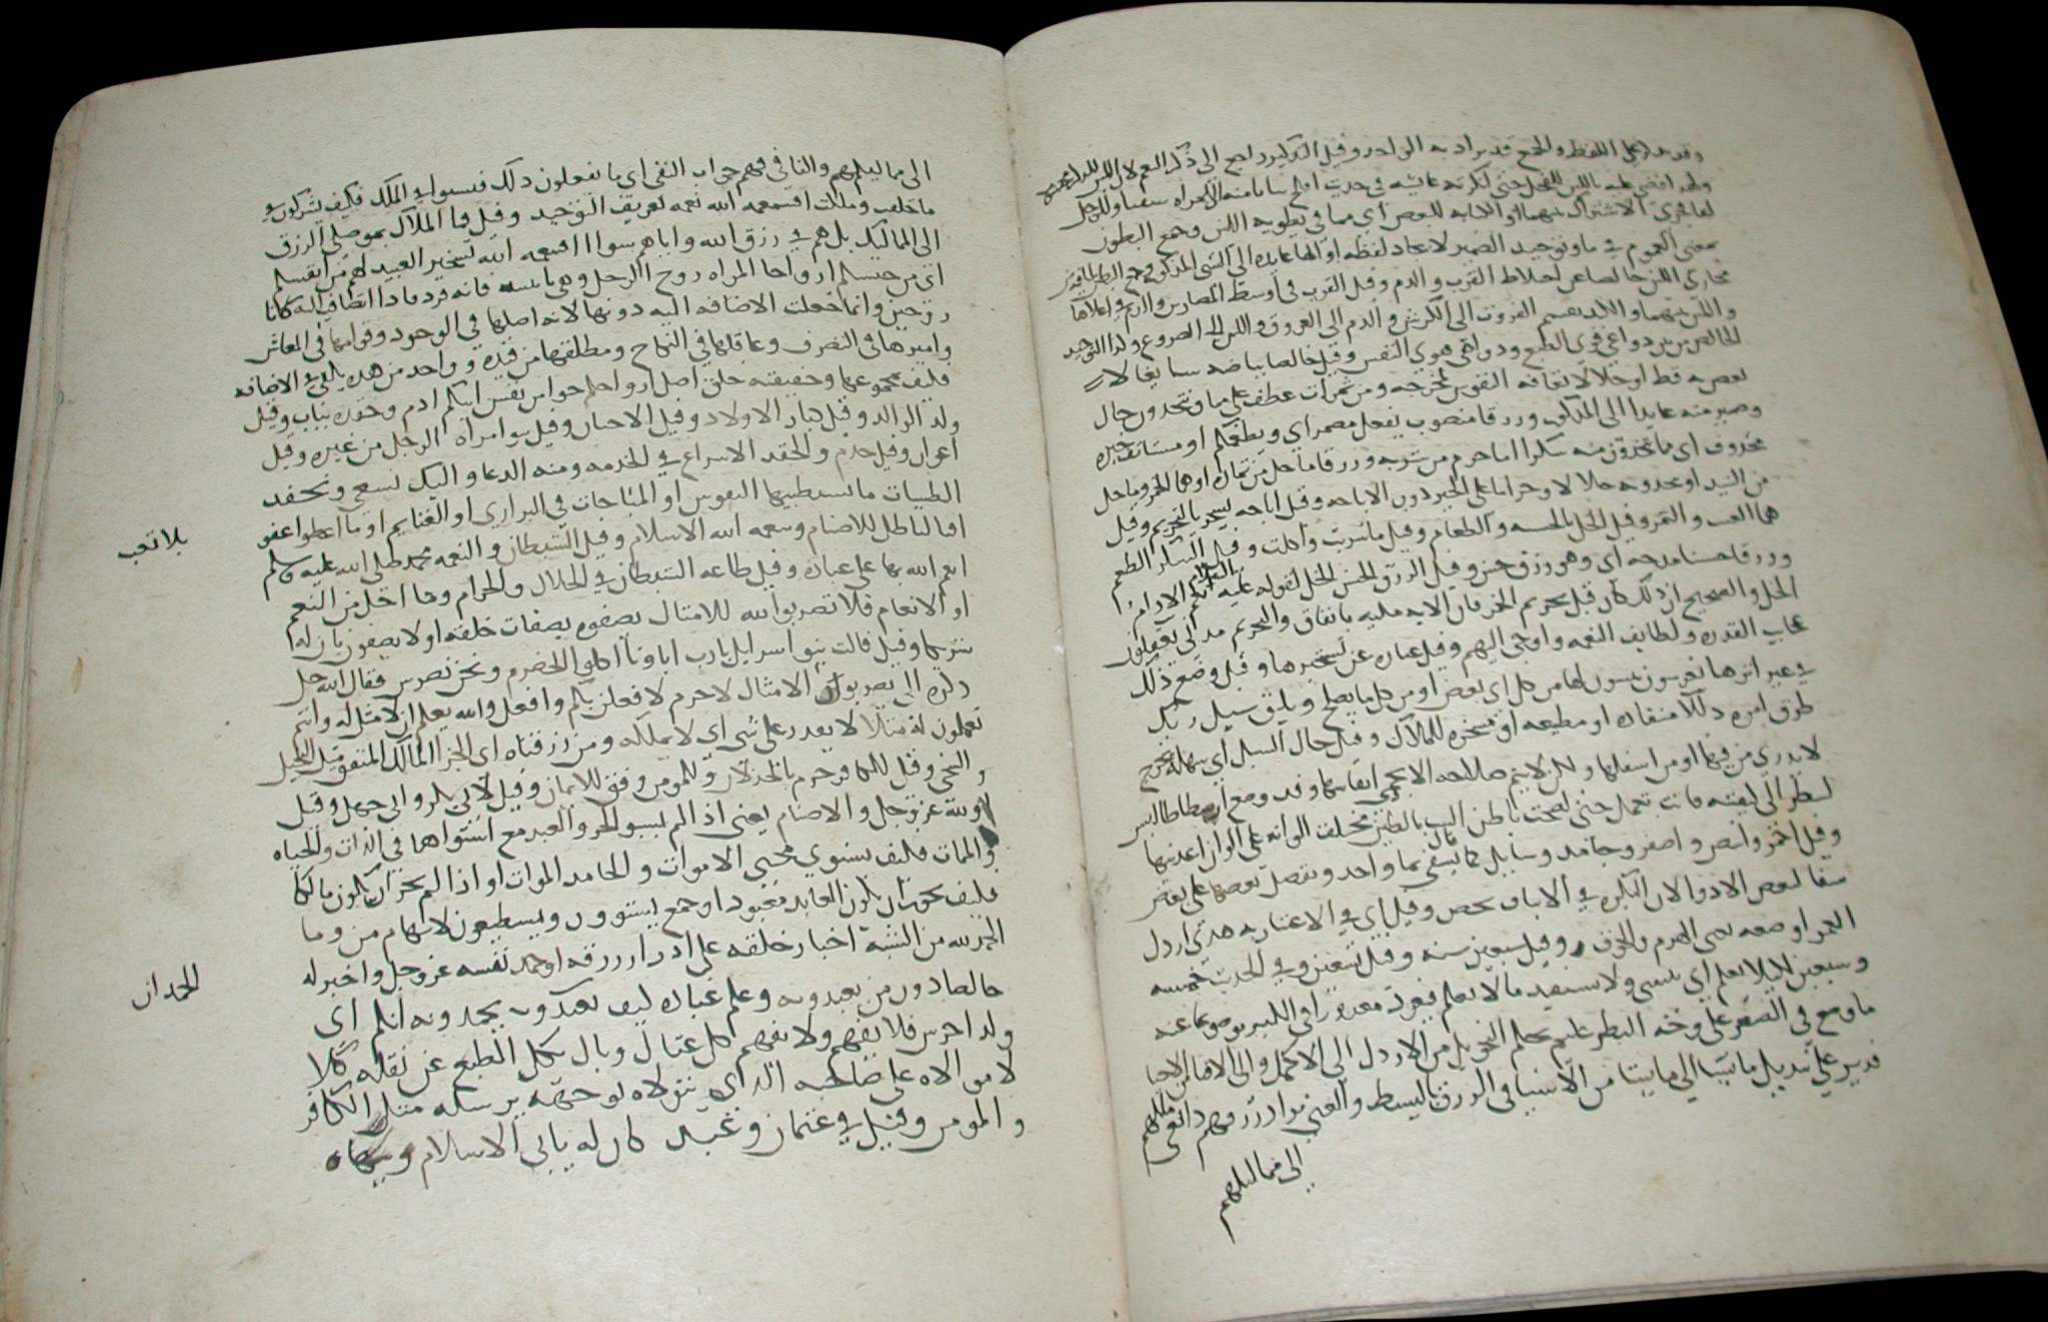 وقد يدل على اللفظ والجمع قد يراد به الواحد وقيل التذكير راجع الى ذكر النعم لان اللبن للذكر محمه
ولهذا افضى عليه باللبن للفحل حتى عايشة في حديث افلح للمراه سقيا وللرجل
لقاح فجرى الاشتراك بينهما او الكنايه للبعض اي مما في بطونه اللبن وجمع البطون
بمعنى العموم في ما وتوحيد الضمير لاتحاد لفظه او الها عايده الى الشي المذكور
مجاري اللبن خالصا عن اخلاط الفرث والدم وقيل الفرث في اوسط المصارين والدم في اعلاها
واللبن بينهما والكبد يقسم الفروث الى الكرش والدم الى العروق واللبن الى الضروع ولذا التوحيد
الخالص من بين دواعي قوى الطبع ودواعي هوى النفس وقيل خالصا بياضه سايغا لا
يغص به قط او حلالا تعافه النفوس لمخرجه ومن ثمرات عطف على ما وتتخذون حال
وضمير منه عايدا الى المذكور ورزقا منصوب بفعل مضمر اي ويطعمكم او مستانف خبره
محذوف اي ما تتخذون منه سكرا اما حرم من شربه ورزقا ما حل من ثماره او هما الخمر وما حل
من النبيذ او تتخذونه حلالا وحراما على الخبر دون الاباحه وقيل اباحه نسخ بالتحريم وقيل
هما العنب والتمر وقيل الخل بالحبشه والطعام وقيل ما شربت واكلت وقيل السكر الطعم
ورزقا حسنا مدحه اي وهو رزق حسن وقيل الرزق الحسن الخل لقوله عليه السلام نعم الادام
الخل والصحيح ان ذلك كان قبل تحريم الخمر فان الايه مكيه باتفاق والتحريم مدني يعقلون
عجايب القدره ولطايف النعمه واوحى اليهم وقيل عباره عن تسخيرها وقيل وضع ذلك
في غير اثرها يعرشون يبنون لها من كل اي بعض او من كل ما يصلح ويليق سبيل ربك
طرق امره ذللا منقاده او مطيعه او مسخره للملاك وقيل حال السبل اي سهله يخرج
لا يدرى من فيها او من اسفلها ولكن لا يتم صلاحه الا بحمي انفاسها وقد وضع ارسطاطاليس
لينظر الى كيفيته فابت تعمل حتى لطخت باطن البيت بالطين مختلف الوانه على الوان اغذيتها
وقيل احمر وابيض واصفر وجامد وسايل مال يسقى بما واحد ونفضل بعضها على بعض
شفا لبعض الادوا لان النكره في الاثبات تخص وقيل اي في الاعتبار به هدى ارذل
العمر اوضعه يعني الهرم والخرف وقيل سبعين سنه وقيل تسعين وفي الحديث خمسه
وسبعين لكيلا يعلم اي ينسى ولا يستفيد ما لا يعلم فيعود معذورا في الكبر موضوعا عنه
ما وضع في الصغر على وجه النظر عليم بحكم التحويل من الارذل الى الاكمل والى الافنا من الاحيا
قدير على تبديل ما يشا الى ما يشا من الاشيا في الرزق بالبسط والغنى برادي رزقهم دافعي ملكهم
الى مماليكهم
الى مماليكهم والفا في فهم جواب النفي اي ما يفعلون ذلك فيستوا في الملك فكيف تشركون في
ما خلقت وملكت افبنعمه الله نعمه تعريف التوحيد وقيل فما الملاك بموصلي الرزق
الى المماليك بل هم في رزق الله واياهم سوا افبنعمه الله تسخير العبيد لهم من انفسكم
اي من جنسكم ازواجا المراه زوج الرجل وهي بنفسه فانه فرد فاذا انضاف اليه كانا
زوجين وانما جعلت الاضافه اليه دونها لانه اصلها في الوجود وقوامها في المعاش
واميرها في التصرف وعاقلها في النكاح ومطلقها من قيده وواحد من هذه يكفي في الاضافه
فكيف بمجموعها وحقيقته خلق اصل ازواجكم حوا من نفس ابيكم ادم وحفده بنات وقيل
ولد الولد وقيل كبار الاولاد وقيل الاختان وقيل بنو امراه الرجل من غيره وقيل
اعوان وقيل خدم والحفد الاسراع في الخدمه ومنه الدعا واليك نسعى ونحفد
الطيبات ما تستطيبها النفوس او المباحات في البراري او الغنايم او ما اعطوا عفو
بلا تعب
افبالباطل للاصنام ونعمه الله الاسلام وقيل الشيطان والنعمه محمد صلى الله عليه وسلم
انعم الله بها على عباده وقيل طاعه الشيطان في الحلال والحرام وما احل من النعم
او الانعام فلا تضربوا لله للامثال تصفوه بصفات خلقه او لا يصفون بان له
شريكا وقيل قالت بنو اسرايل يارب اباونا اكلوا الحصرم ونحن نضرس فقال الله جل
ذكره الى يضربون الامثال لا جرم لافعلن بكم وافعل والله يعلم ان لا مثل له وانتم
تعملون له مثلا لا يقدر على شي اي لا يملكه ومن رزقناه اي الحر المالك المنفق مثل البخيل
والسخي وقيل للكافر حرم بالخذلان وللمومن وفق للايمان وقيل لابي بكر وابي جهل وقيل
لله عز وجل والاصنام يعني اذا لم يستو الحر والعبد مع استواهما في الذات والحياه
والممات فكيف يستوي محيي الاموات والجامد الموات او اذا لم يجز ان يكون مالكا
فكيف يجوز ان يكون العابد معبودا وجمع يستوون ويستطيعون لابهام من وما
الحمد لله من الشبه اخبار خلقه على ادرار رزقه او حمد نفسه عز وجل واخبر له
الحمد ان
خالصا دون من يعبدونه وعلم عباده كيف يحمدونه ابكم اي
ولد اخرس فلا يفهم ولا يفهم كل عيال وبال كل الطبع عن نقله كلا
لا مولاه على صاحبه الذي يتولاه يوجهه يرسله مثل الكافر
والمومن وقيل في عثمان وعبد كان له يابى الاسلام وينهاه